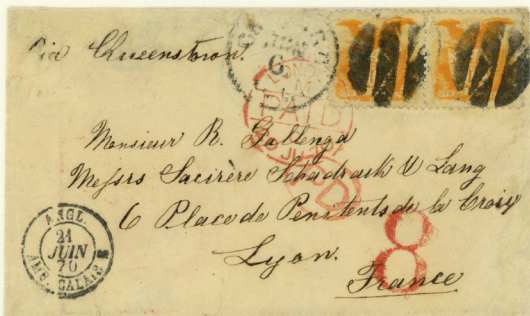 Via Queenstown.
LOND
PAID
PD
Monsieur R. Gallenga
Messrs Sacirère Schadrask U Lang
6 Place de Penitents de la Croix
Lyon.
France
8
ANGL.
21
JUIN
70
AMB. CALAIS